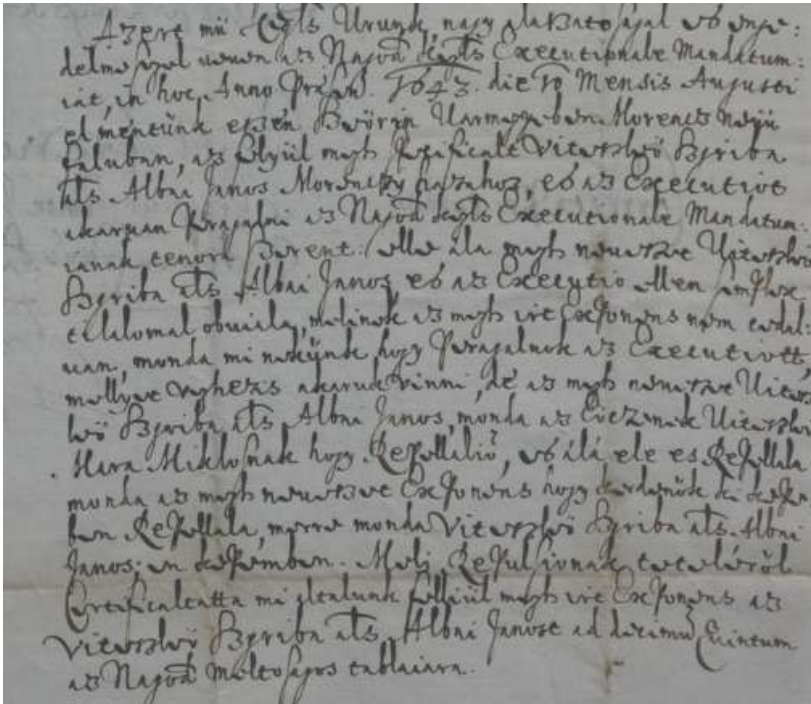 Azert mü Kegls Urunk, nagy alazatosagal es enge:
delmesegel ueuen az Nagod kegls Executionale Mandatum:
iat, in hoc Anno Praesen. 1643. die 19 Mensis Augusti
el mentünk ezen Zworin Uarmegyeben Morencz neuü
faluban, az feliül megh specificalt Vitezlwö Byriba
als Albai Janos Morenczy hazahoz, es az Executiot
akaruan Peragalni az Nagod kegls Executionale Mandatum:
ianak tenora szerent: elle ála megh neuezue Uitezlwö
Byriba als Albai Janos, es az Executio ellen simplice
tilalomal obuiala, melinek az megh irt Exponens nem enged:
uen, monda mi nekünk hogy Peragalnok az Executiott,
mellyet veghezs akarue vinni, de az megh neuezue Uitez
lwö Byriba als Albai Janos, monda az Eleznek Uitezlwö
Hara Miklosnak hogy Repellalio, es álá ele es Repellala
monda az megh neuezue Exponens hogy kerdgiük ki kepe
ben Repellala, merre monda Vitezlwö Byriba als Albai
Janos; en kepemben. Meli Repulsionak teteléröl
Certificaltatta mi altalunk feliiül megh irt Exponens az
Vitezlwö Byriba als Albai Janost ad decimu Quintum
az Nagod meltosagos tablaiara.